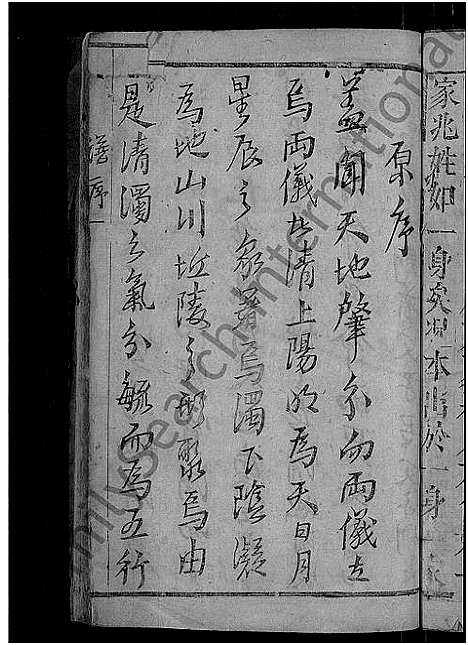 家兆姓如一身矣
本
於一身
原序
蓋聞天地肇分而兩儀立
焉兩儀
清上陽
為天日月
星辰之象
焉濁下陰凝
為地山川坵陵之形聚焉由
是清濁之氣分毓而為五行
譜序一